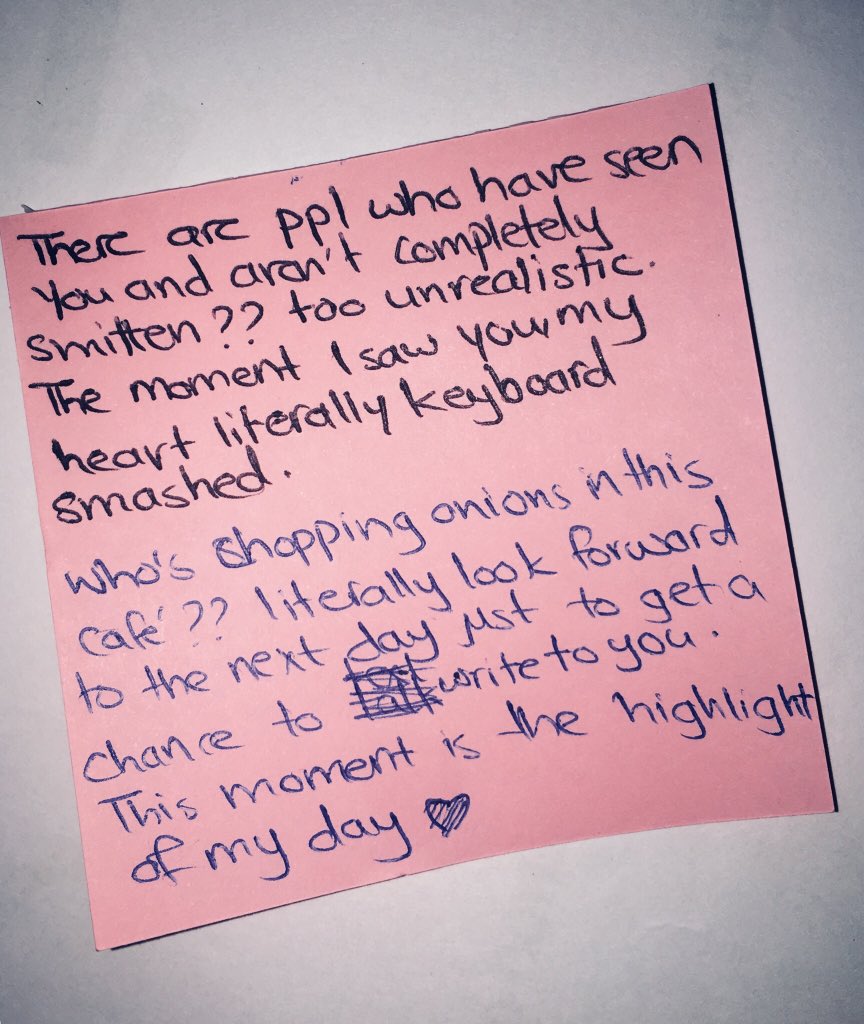 There are ppl who have seen
you and aren't completely
smitten?? too unrealistic.
The moment I saw you, my
heart literally keyboard
smashed.
who's shopping onions in this
café?? literally look forward
to the next day just to get a
chance to write to you.
This moment is the highlight
of my day ♥